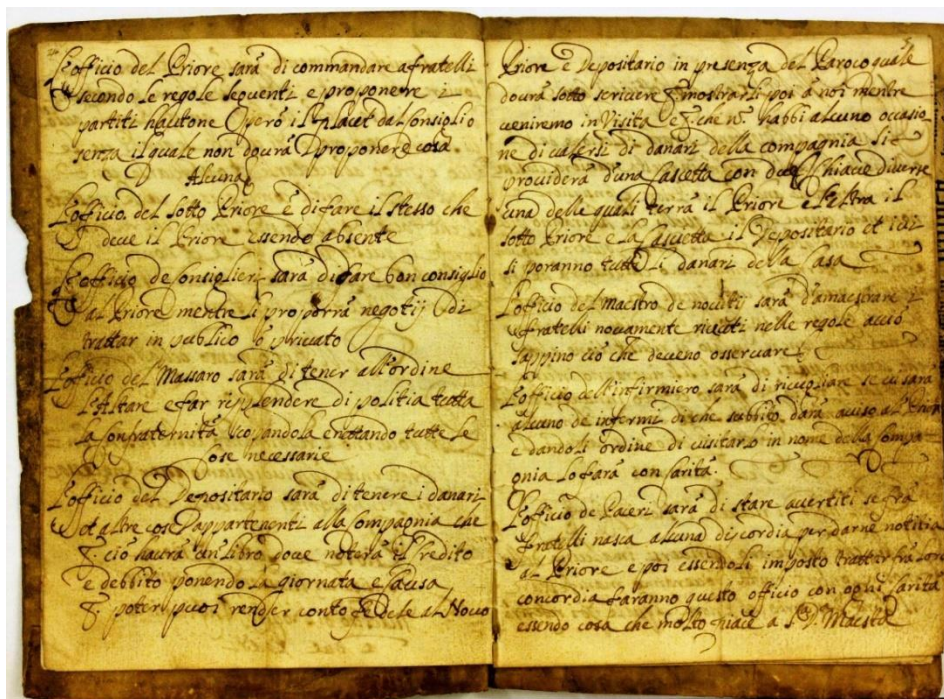 L'officio del Priore sarà di commandare a fratelli
secondo le regole sequenti e proporrere i
partiti hautone Però il placet dal Consiglio
senza il quale non dourà proponere cosa
Alcuna
L'officio del sotto Priore è di fare il stesso che
deue il Priore essendo absente
L'officio de Consiglieri sarà di fare bon consiglio
al Priore mentre li proporrà negotij Di
trattar in publico ò priuato
L'officio del Massaro sarà di tener all'ordine
L'Altare e far risplendere di politia tutta
la Confraternità scopandola e nettando tutte le
Cose necessarie
L'officio del Depositario sarà di tenere i danari
et altre cose appartenenti alla Compagnia che
P. ciò haurà un libro doue noterà il credito
e debbito ponendo la giornata e Causa
P. poter puoi render conto fedele al Nouo
5
Priore e Depositario in presenza del Paroco quale
dourà sotto scriuere P. mostrarli poi à noi mentre
veniremo in Visita e P. che nō habbi alcuno occasio
ne di valersi di danari della compagnia si
prouiderà d'una Cascetta con due Chiaue diuerse
una delle quali terrà il Priore e l'Altra il
sotto Priore e la Cascietta il Depositario et iui
si poranno tutti li danari della Casa
L'officio del Maestro de nouitij sarà d'amaestrare i
fratelli nouamente riceuti nelle regole acciò
sappino ciò che deueno osseruare
L'officio dell'infirmiero sarà di inuigliare se ui sarà
alcuno de infermi di che subbito darà auiso al Priore
e dandoli ordine di uisitarlo in nome della Compa
gnia lo farà con Carità.
L'officio de Pacieri sarà di stare auertiti se frà
fratelli nasca alcuna discordia per darne notitia
al Priore e poi essendoli imposto trattar frà loro
concordia faranno questo officio con ogni Carità
essendo cosa che molto piace a S. D. Maestà